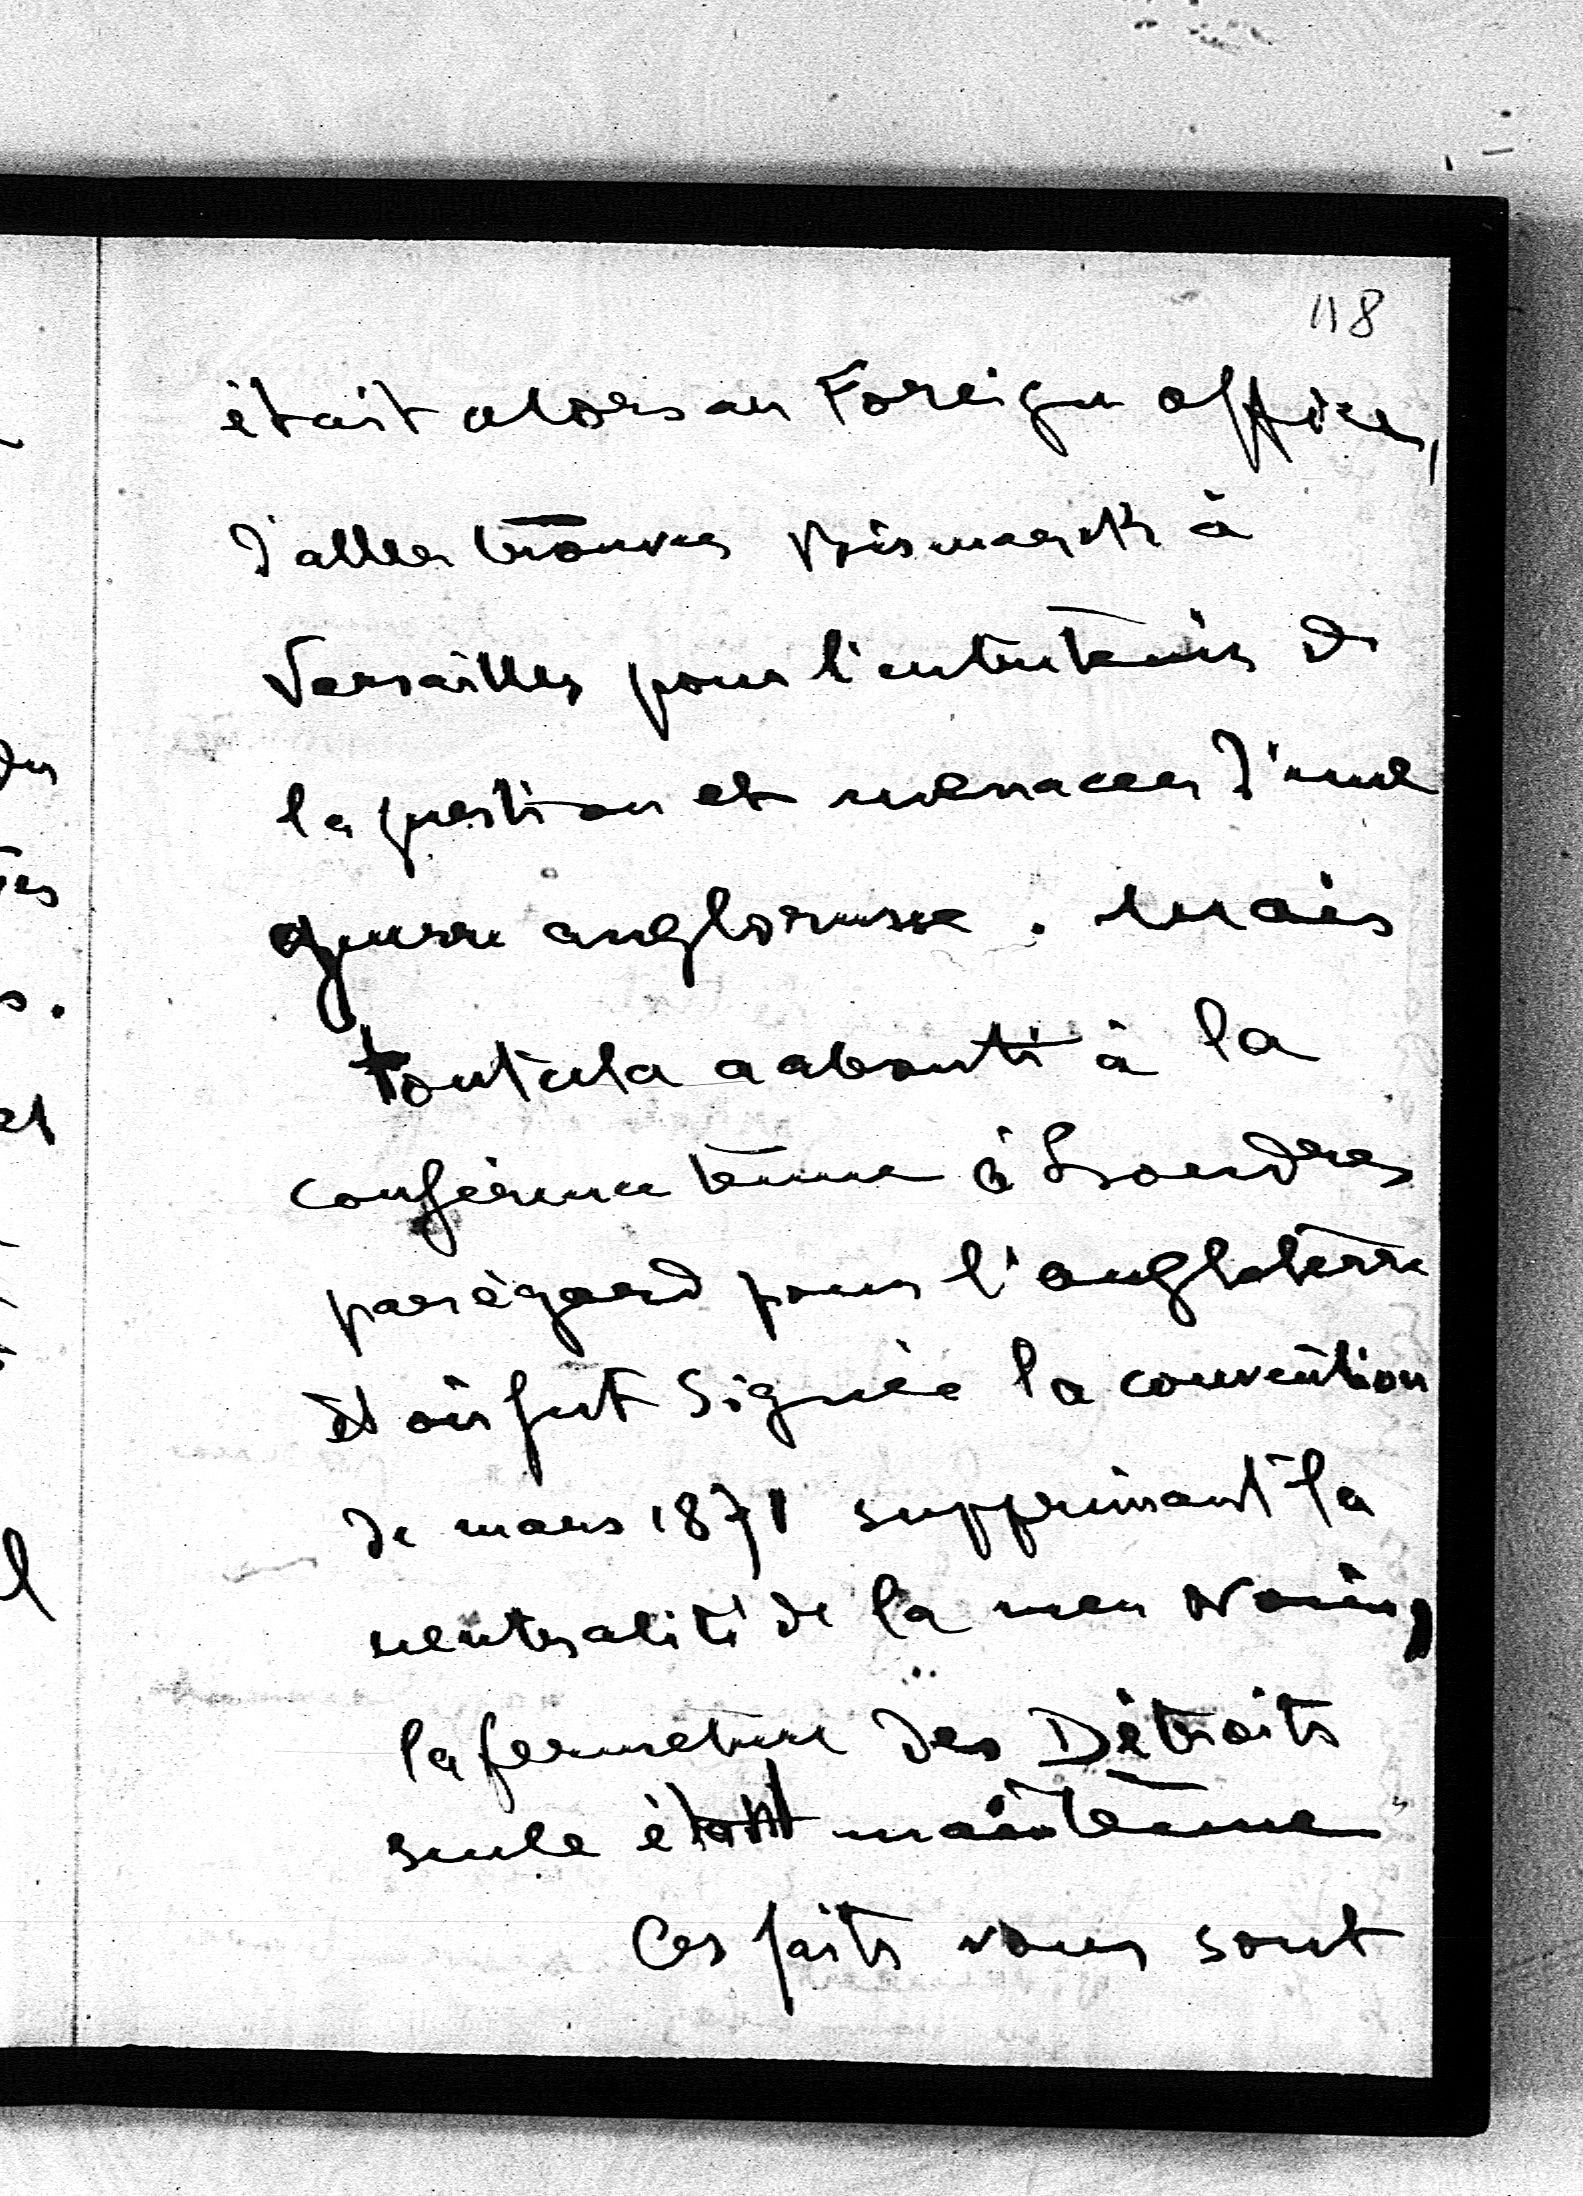 118
était alors au Foreign office,
d'aller trouver Bismarck à
Versailles pour l'entretenir de
la question et menacer d'une
guerre anglorusse. Mais
tout cela a abouti à la
conférence tenue à Londres
par égard pour l'angleterre
et où fut signée la convention
de mars 1871 supprimant la
neutralité de la mer Noire,
la fermeture des Détroits
seule étant maintenue
Ces faits vous sont